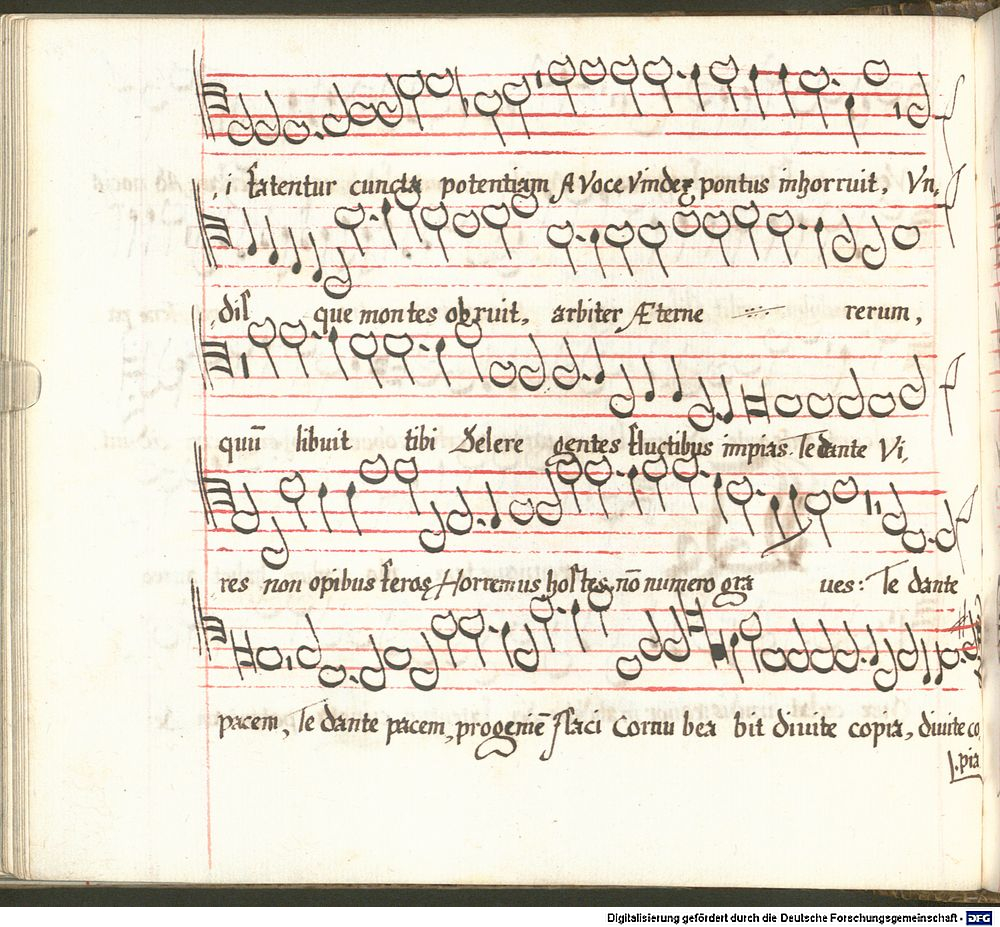 , i fatentur cuncta potentiam A voce vindex pontus inhorruit, Vn,
, dis que montes obruit, arbiter Æterne rerum,
quũ libuit tibi Delere gentes fluctibus impias. Te dante Vi,
res non opibus feros, Horremus hostes, nõ numero gra ues: Te dante
pacem, Te dante pacem, progeniẽ flaci Cornu bea bit diuite copia, diuite co
pia
Digitalisierung gefördert durch die Deutsche Forschungsgemeinschaft - DFG